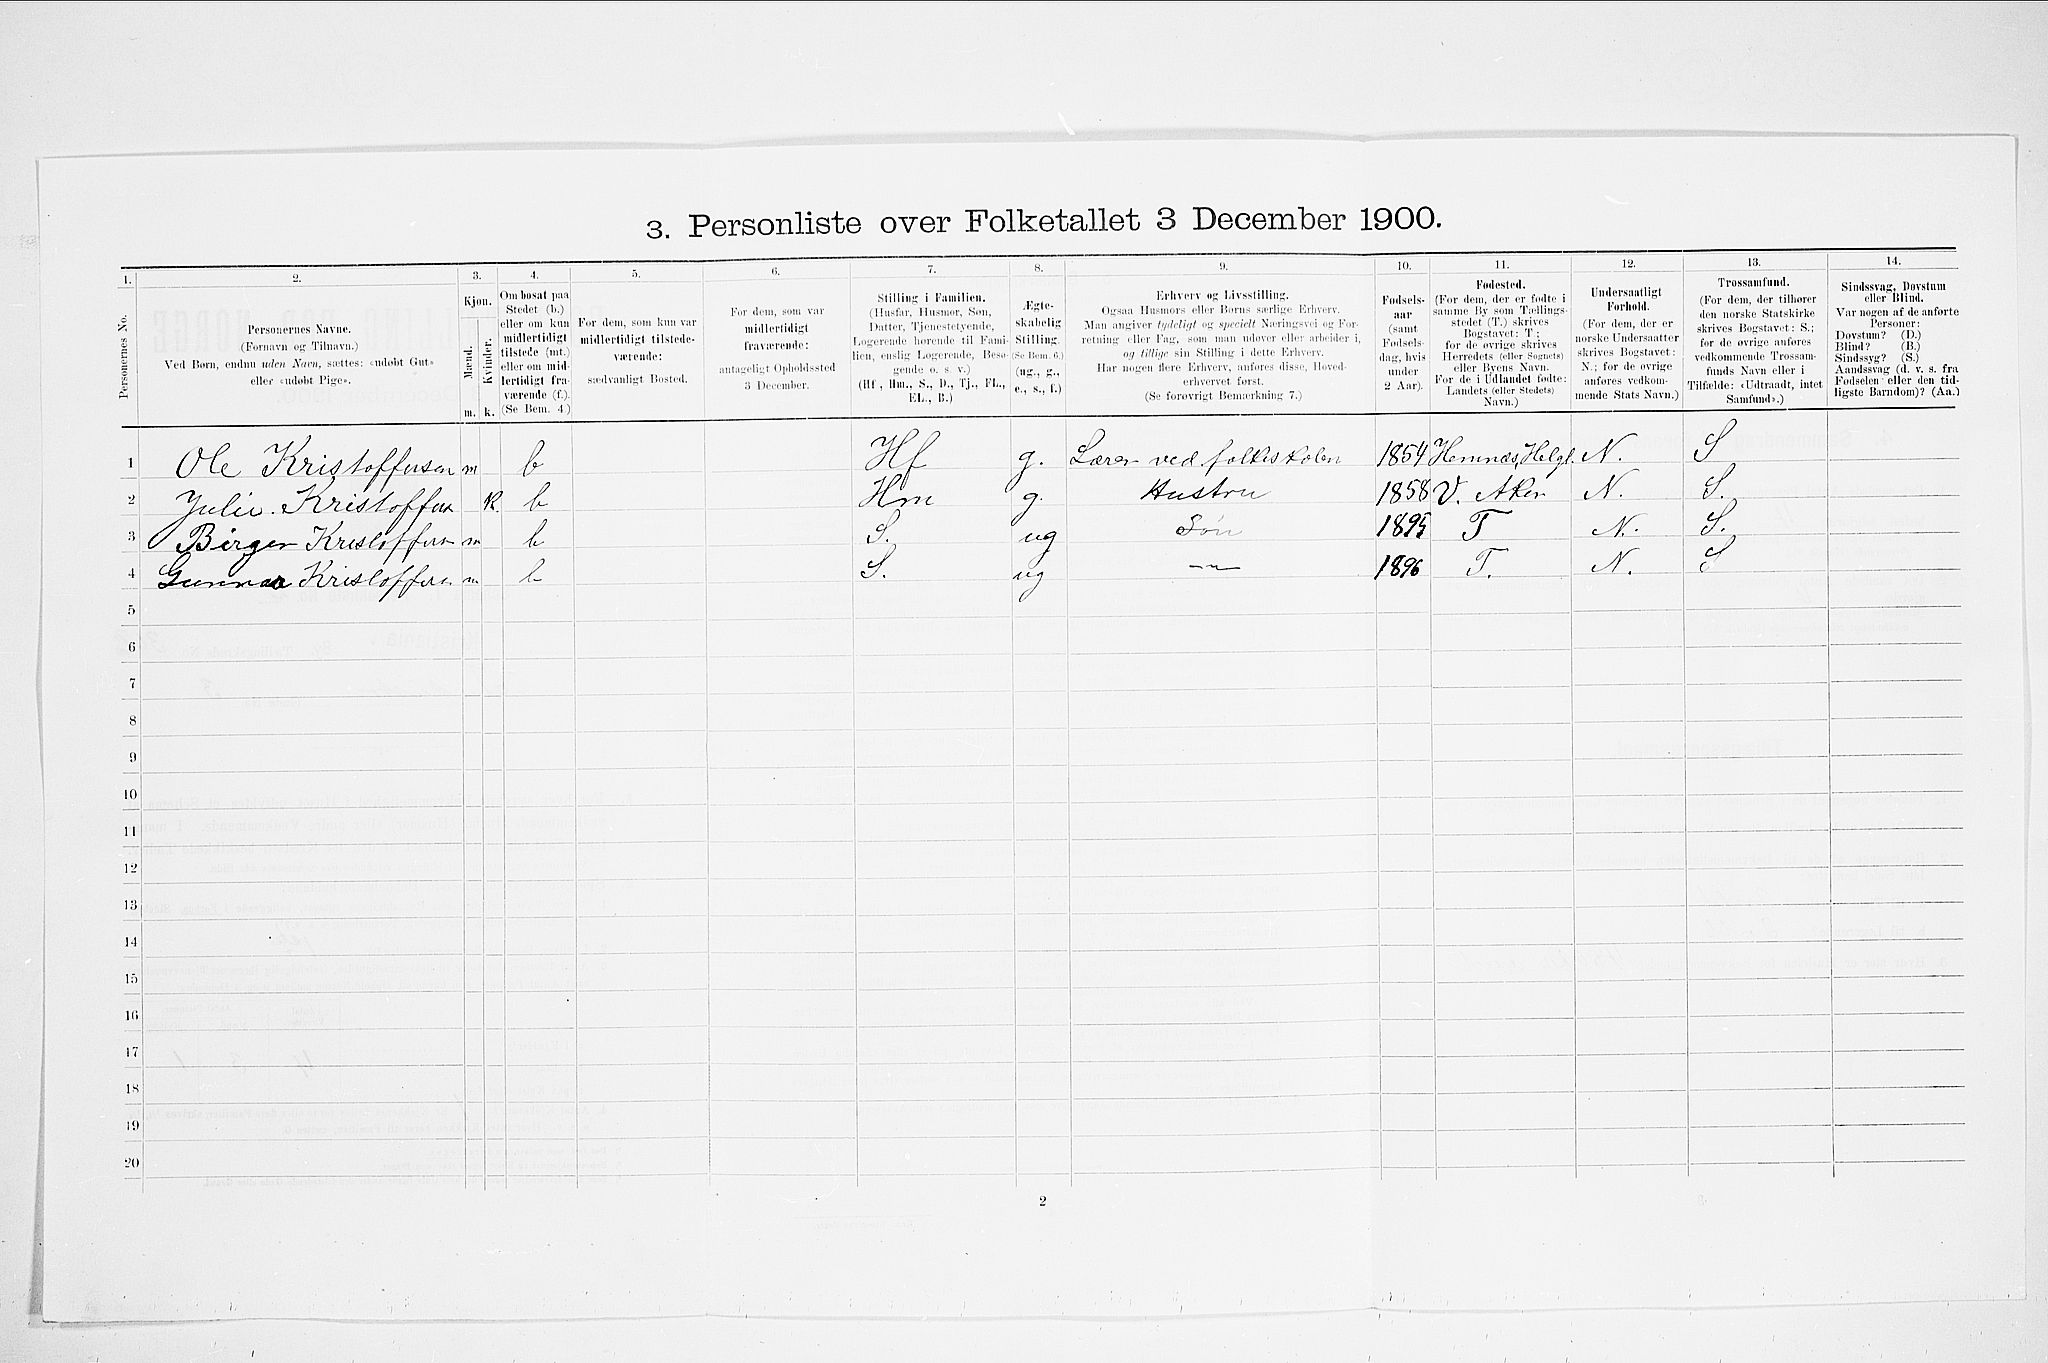 3. Personliste over Folketallet 3 December 1900.
1. 2. 3. 4. 5. 6. 7. 8. 9. 10. 11. 12. 13. 14.
Personernes No.
Personernes Navne.
(Fornavn og Tilnavn.)
Ved Børn, endnu uden Navn, sættes: «udøbt Gut»
eller «udøbt Pige».
Kjøn.
Mænd.
Kvinder.
m. k.
Om bosat paa
Stedet (b.)
eller om kun
midlertidigt
tilstede (mt.)
eller om mid-
lertidigt fra-
værende (f.).
(Se Bem. 4)
For dem, som kun var
midlertidigt tilstede-
værende:
sædvanligt Bosted.
For dem, som var
midlertidigt
fraværende:
antageligt Opholdssted
3 December.
Stilling i Familien.
(Husfar, Husmor, Søn,
Datter, Tjenestetyende,
Logerende hørende til Fami-
lien, enslig Logerende, Besø-
gende o. s. v.)
(Hf., Hm., S., D., Tj., FL.,
EL., B.)
Ægte-
skabelig
Stilling.
(Se Bem. 6.)
(ug., g.,
e., s., f.)
Erhverv og Livsstilling.
Ogsaa Husmors eller Børns særlige Erhverv.
Man angiver tydeligt og specielt Næringsvei og For-
retning eller Fag, som man udøver eller arbeider i,
og tillige sin Stilling i dette Erhverv.
Har nogen flere Erhverv, anføres disse, Hoved-
erhvervet først.
(Se forøvrigt Bemærkning 7.)
Fødsels-
aar
(samt
Fødsels-
dag, hvis
under
2 Aar).
Fødested.
(For dem, der er fødte i
samme By som Tællings-
stedet (T.) skrives
Bogstavet: T;
for de øvrige skrives
Herredets (eller Sognets)
eller Byens Navn.
For de i Udlandet fødte:
Landets (eller Stedets)
Navn.)
Undersaatligt
Forhold.
(For dem, der er
norske Undersaatter
skrives Bogstavet:
N.; for de øvrige
anføres vedkom-
mende Stats Navn.)
Trossamfund.
(For dem, der tilhører
den norske Statskirke
skrives Bogstavet: S.;
for de øvrige anføres
vedkommende Trossam-
funds Navn eller i
Tilfælde: «Udtraadt, intet
Samfund».)
Sindssvag, Døvstum
eller Blind.
Var nogen af de anførte
Personer:
Døvstum? (D.)
Blind? (B.)
Sindssyg? (S.)
Aandssvag (d. v. s. fra
Fødselen eller den tid-
ligste Barndom)? (Aa.)
1 Ole Kristoffersen m b Hf g. Lærer ved folkeskolen 1854 Hemnæs, Helgl. N. S
2 Julie Kristoffers k. b Hm g. Hustru 1858 V. Aker N. S.
3 Birger Kristoffersen m b S. ug Søn 1895 T N. S.
4 Gunnar Kristoffersen m b S. ug —"— 1896 T. N. S
5
6
7
8
9
10
11
12
13
14
15
16
17
18
19
20
2